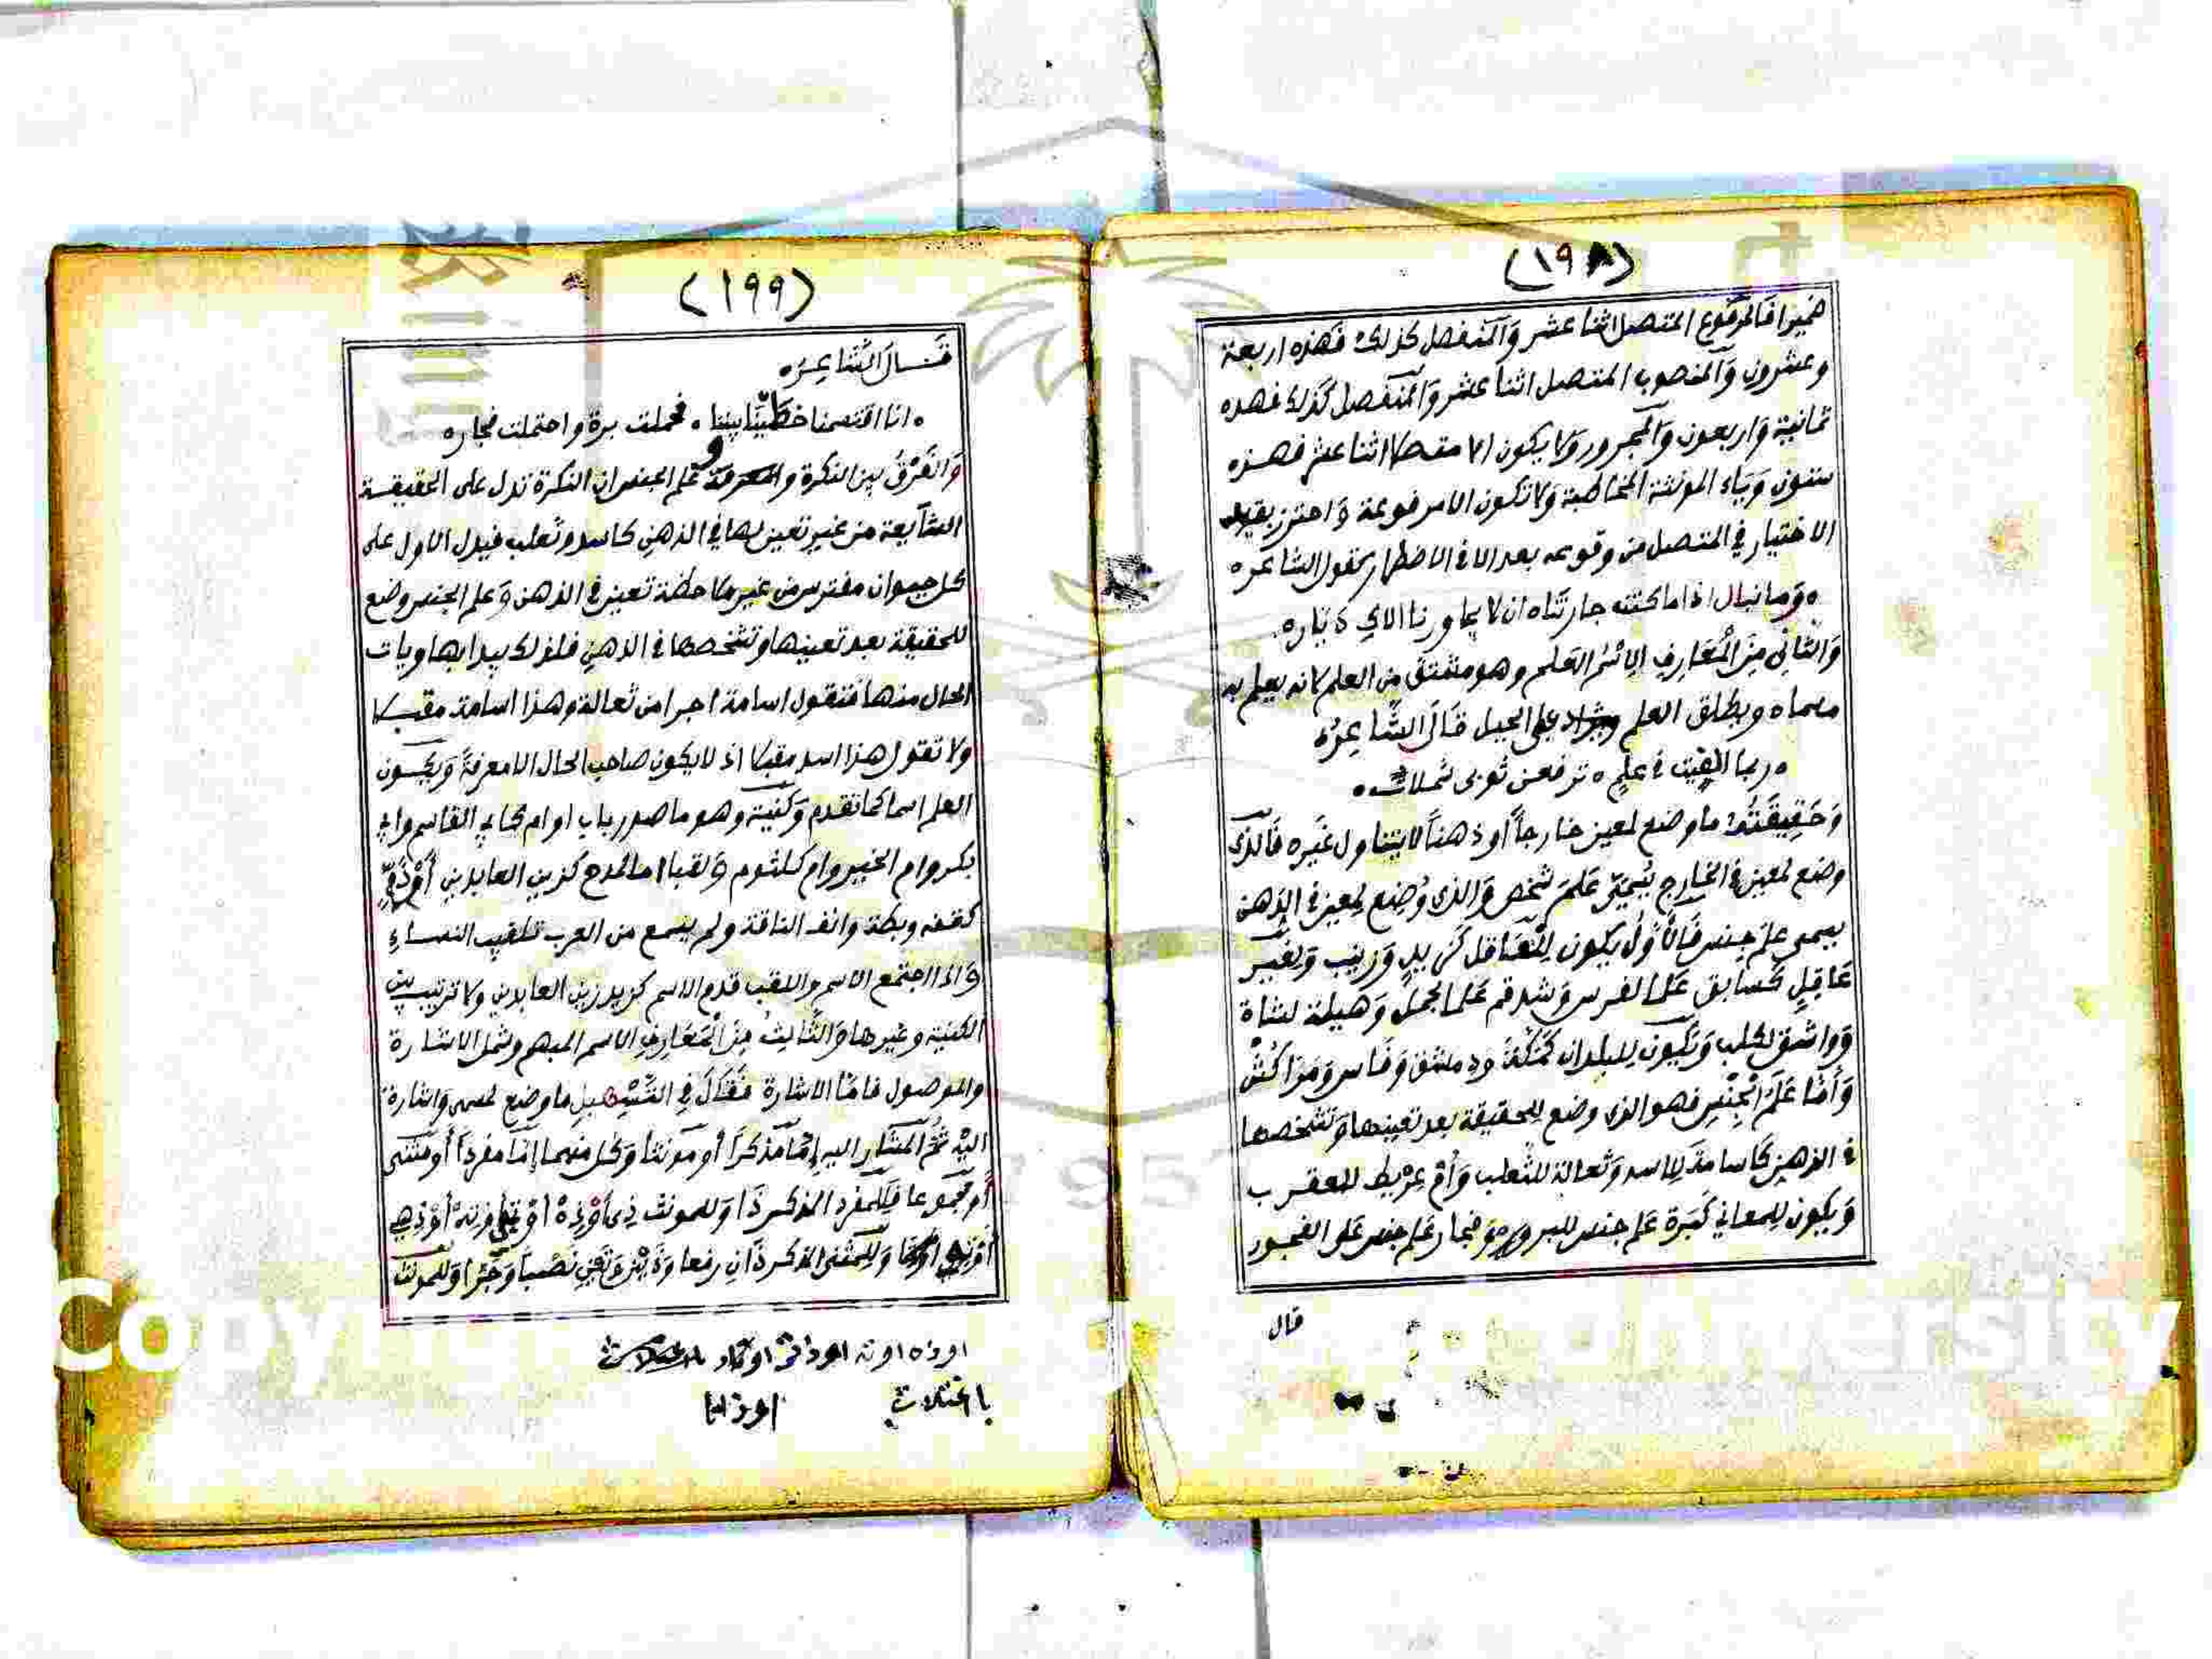 (١٩٨)
ضميرا فالمرفوع المتصل اثنا عشر وَالمنفصل كذلك فهذه اربعة
وعشرون وَالمنصوب المتصل اثنا عشر وَالمنفصل كذلك فهذه
ثمانية وَاربعون وَالمجرور ولا يكون الا متصلا اثنا عشر فهذه
ستون وَياء المؤنثة المخاطبة وَلا تكون الا مرفوعة وَاحترز بقيد
الاختيار في المتصل من وقوعه بعد الا في الاضطرار كقول الشاعره
ه وَما نبالي اذا ما كنت جارتناه ان لا يجاورنا الاك دياره
وَالثاني مِنَ الْمَعَارِفِ الِاسْمُ العَلم وهو مشتق من العلم لانه يعلم به
مسماه ويطلق العلم على الجبل قَالَ الشَّاعِرُه
ه ربما الفيت في علمٍ ه ترفعن ثوبى شملات ه
وَحَقِيقَتُهُ ما وضع لمعين خارجاً أو ذهناً لا يتناول غيره فَالذى
وضع لمعين في الخارج يُسَمَّى عَلَمَ شخص وَالذى وُضِع لمعين في الذهن
يسمى علمَ جنس فَالأَوَّلُ يكون لِلْعَاقل كَزَيدٍ وَزينب وَلِغَير
عَاقِلٍ كَسابق عَلما لفرس وَشدقم عَلما لجمل وَهيلة لشاة
وَواشق لكلب وَيَكون للبلدان كَمَكَّةَ ودمشق وَفَاس وَمَرَاكُش
وَأَمَّا عَلَمُ الْجِنْسِ فهو الذى وضع للحقيقة بعد تعينها وَتشخصها
في الذهن كَأسامة للاسد وَثعالة للثعلب وَأُمّ عِرْيط للعقرب
وَيكون للمعاني كَبَرة عَلم جنس للبر وفجار عَلم جنس على الفجور
قال
(١٩٩)
قَالَ الشَّاعِرُه
ه انا اقتسمنا خطّتينا بيننا ه فحملت برة واحتملت فجاره
وَالفَرْقُ بين النكرة و علم الجنس ان النكرة تدل على الحقيقة
الشايعة من غير تعين لها في الذهن كاسد وثعلب فيدل الاول على
كل حيوان مفترس من غير ملاحظة تعين في الذهن وَعلم الجنس وضع
للحقيقة بعد تعينها وتشخصها في الذهن فلذلك يبدا بها ويات
الحال منها فتقول اسامة اجرا من ثعالة وهذا اسامة مقبلا
ولا تقول هذا اسد مقبلا اذ لا يكون صاحب الحال الا معرفة وَيكون
العلم اسما كما تقدم وَكنية وهو ما صدر باب او ام كابي القاسم وابي
بكر وام الخير وام كلثوم وَلقبا اما لمدح كزين العابدين أَوْ ذَمٍّ
كقفه وبطة وانف الناقة ولم يسمع من العرب تلقيب النساء
وَاذا اجتمع الاسم واللقب قدم الاسم كزيد زين العابدين ولا ترتيب بين
الكنية وغيرها وَالثَّالِثُ مِنَ الْمَعَارِفِ الاسم المبهم وشمل الاشارة
والموصول فامّا الاشارة فَقَالَ فِي التَّسْهِيلِ ما وضع لمسمى وَاشارة
اليْه ثُمَّ المشار اليه إمّا مذكراً أو مؤنثا وَكل منهما إمَّا مفرداً أو مثنى
أو مجموعا فَلِلمفرد المذكر ذَا وَللمونث ذِى أوْ ذِهْ أوْ تِى أوْ تِهْ أوْ ذِهِى
وَلِلمثنى المذكر ذَانِ رفعا وَذَيْنِ نَصْباً وَجَرّا وَللمونث
او ذه او ته او ذات
باختلاس